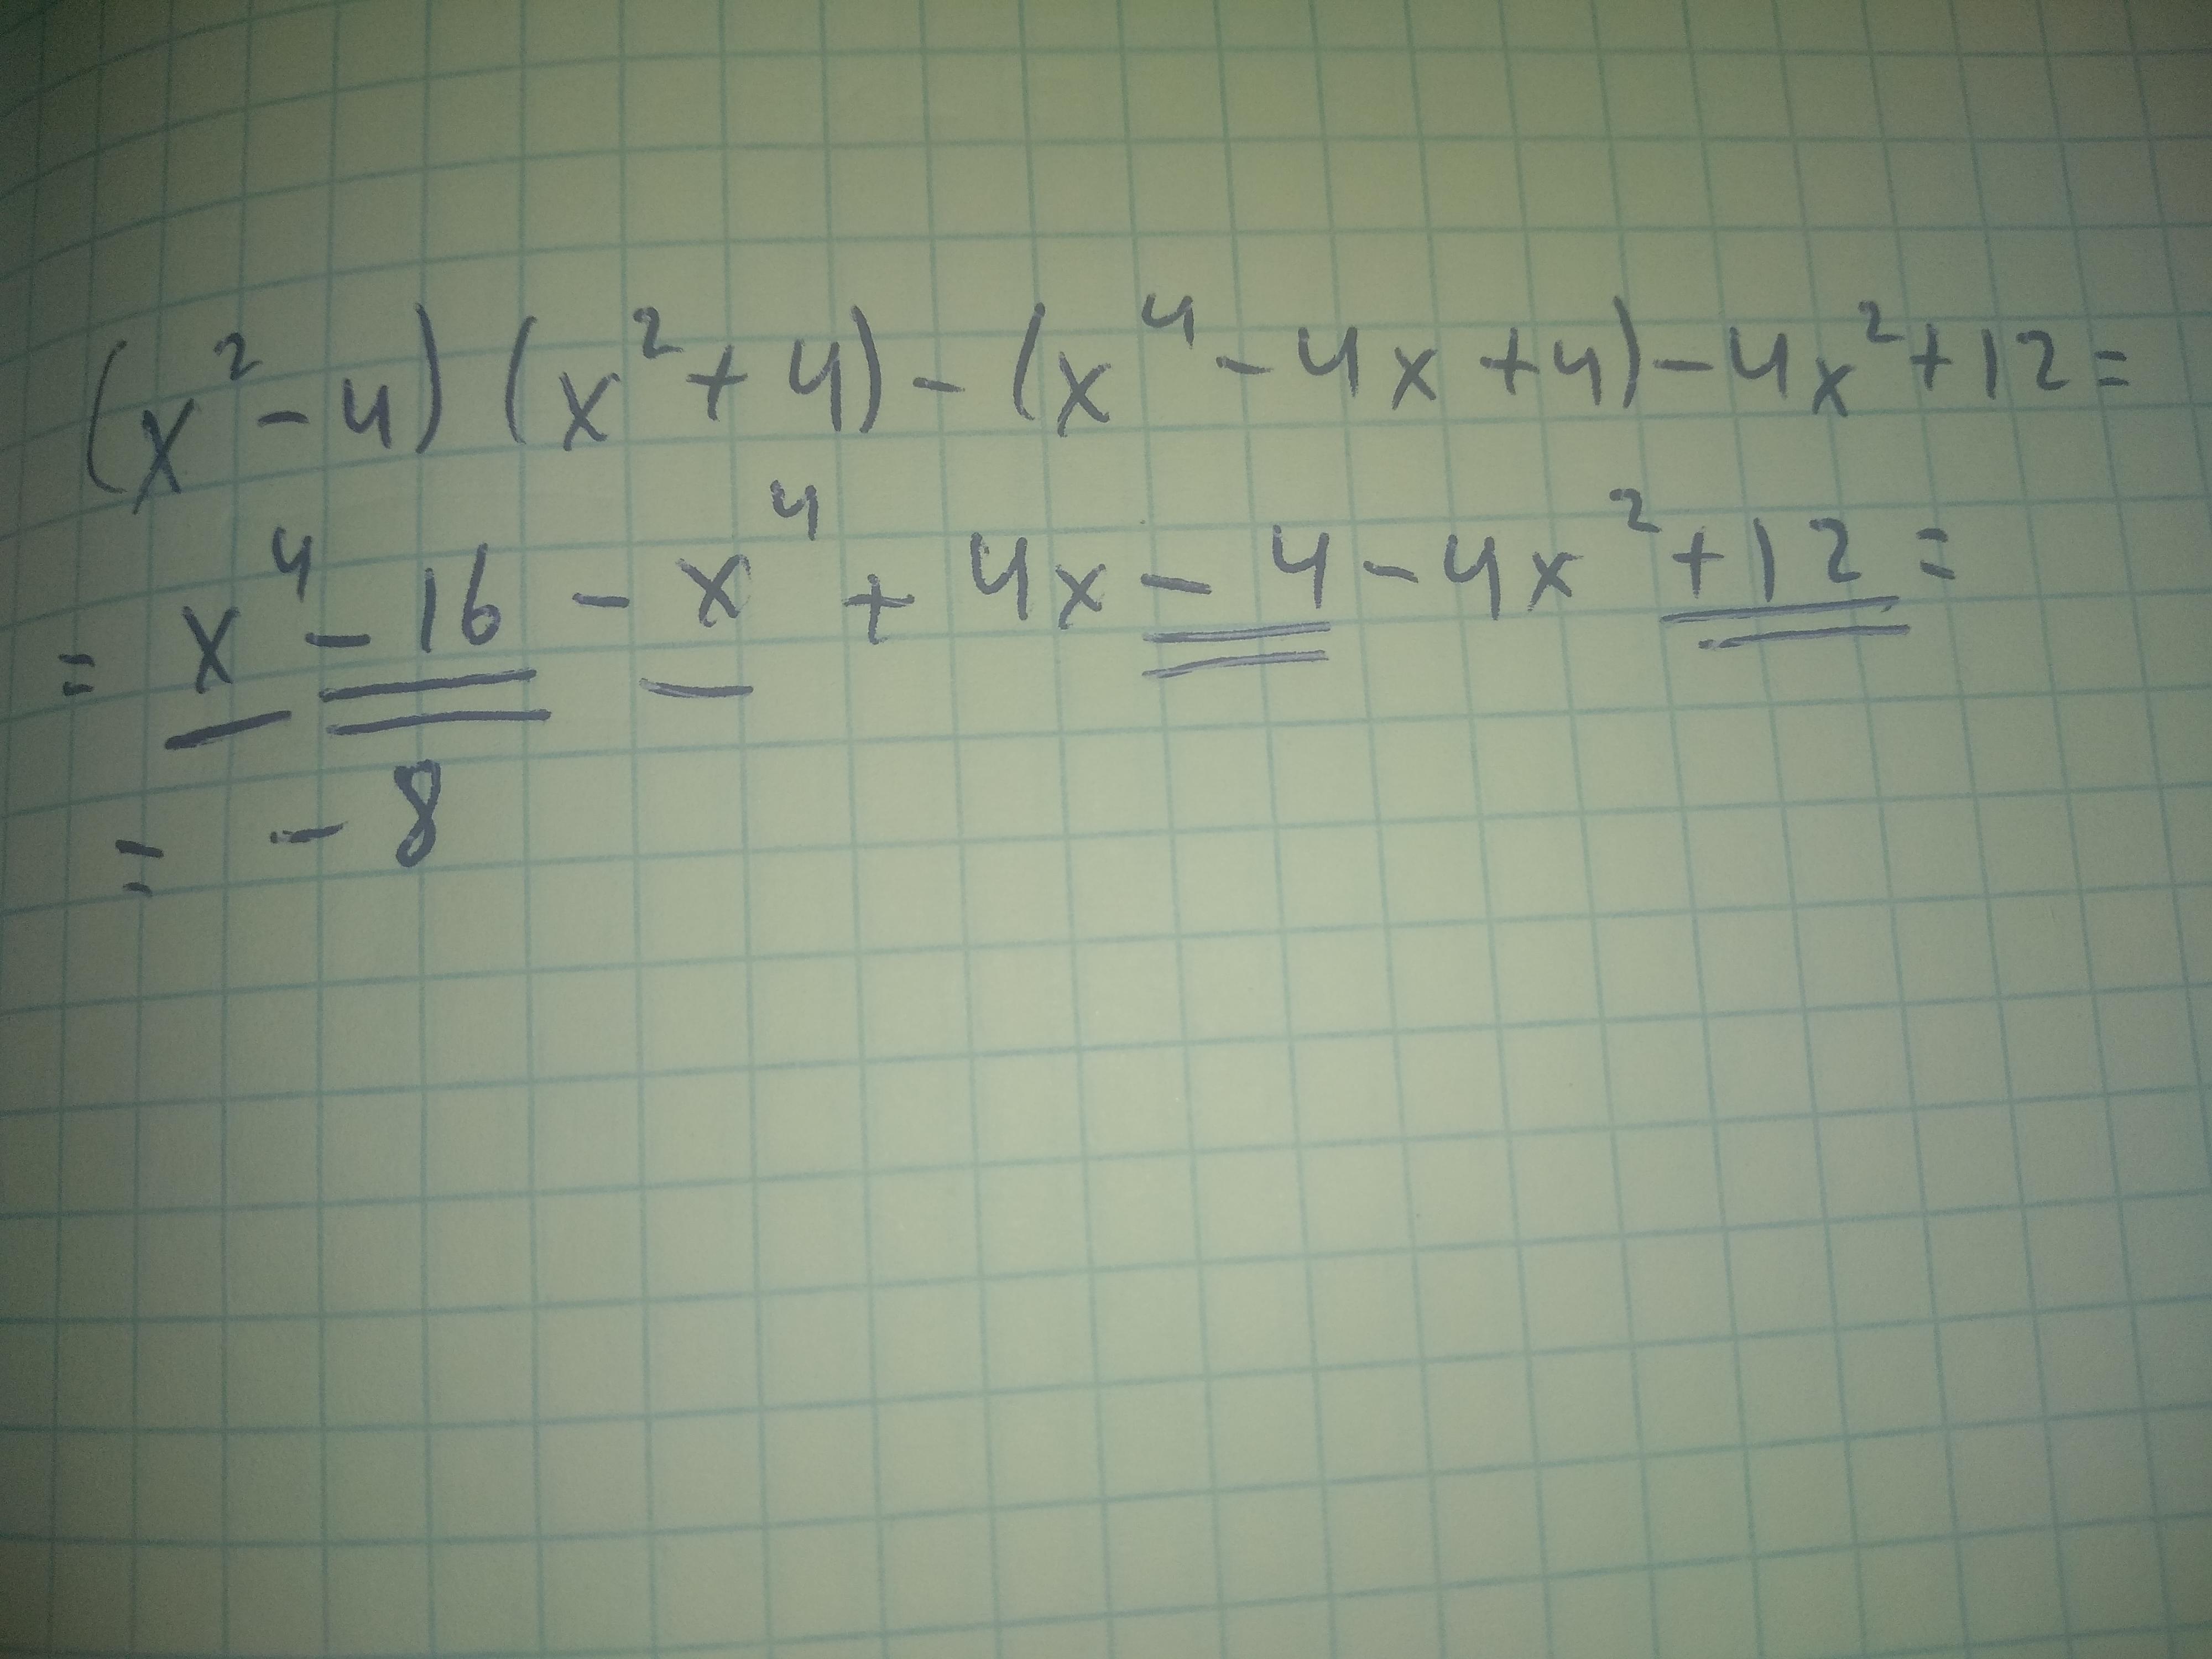 (x² - 4) (x² + 4) - (x⁴ - 4x + 4) - 4x² + 12 =
= x⁴ - 16 - x⁴ + 4x - 4 - 4x² + 12 =
= - 8